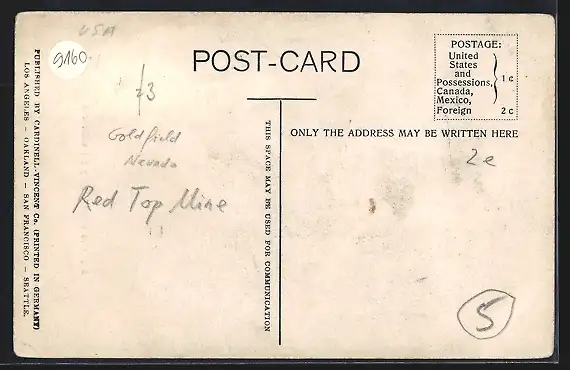 USA
9160
POST-CARD
POSTAGE:
United
States
and
Possessions,
Canada,
Mexico,
1 c
Foreign 2 c
Goldfield
Nevada
Red Top Mine
THIS SPACE MAY BE USED FOR COMMUNICATION
ONLY THE ADDRESS MAY BE WRITTEN HERE
2e
5
PUBLISHED BY CARDINELL-VINCENT Co. (PRINTED IN GERMANY)
LOS ANGELES – OAKLAND – SAN FRANCISCO – SEATTLE.